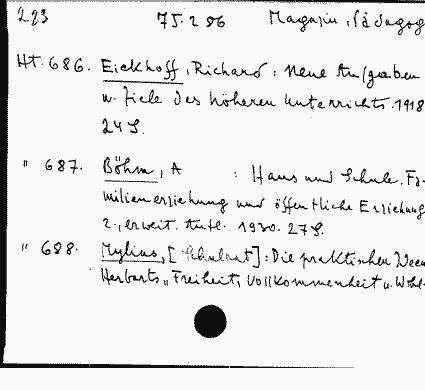 223 75.286 Magazin, Pädagog
Ht. 686. Eickhoff, Richard: Neue Aufgaben
u. Ziele des höheren Unterrichts. 1918
24 S.
" 687. Böhm, A : Haus und Schule. Fa-
milienerziehung und öffentliche Erziehung
2., erweit. Aufl. 1930. 27 S.
" 688. Mylius, [Schulrat]: Die praktischen Ideen
Herbarts „Freiheit, Vollkommenheit u. Wohl-